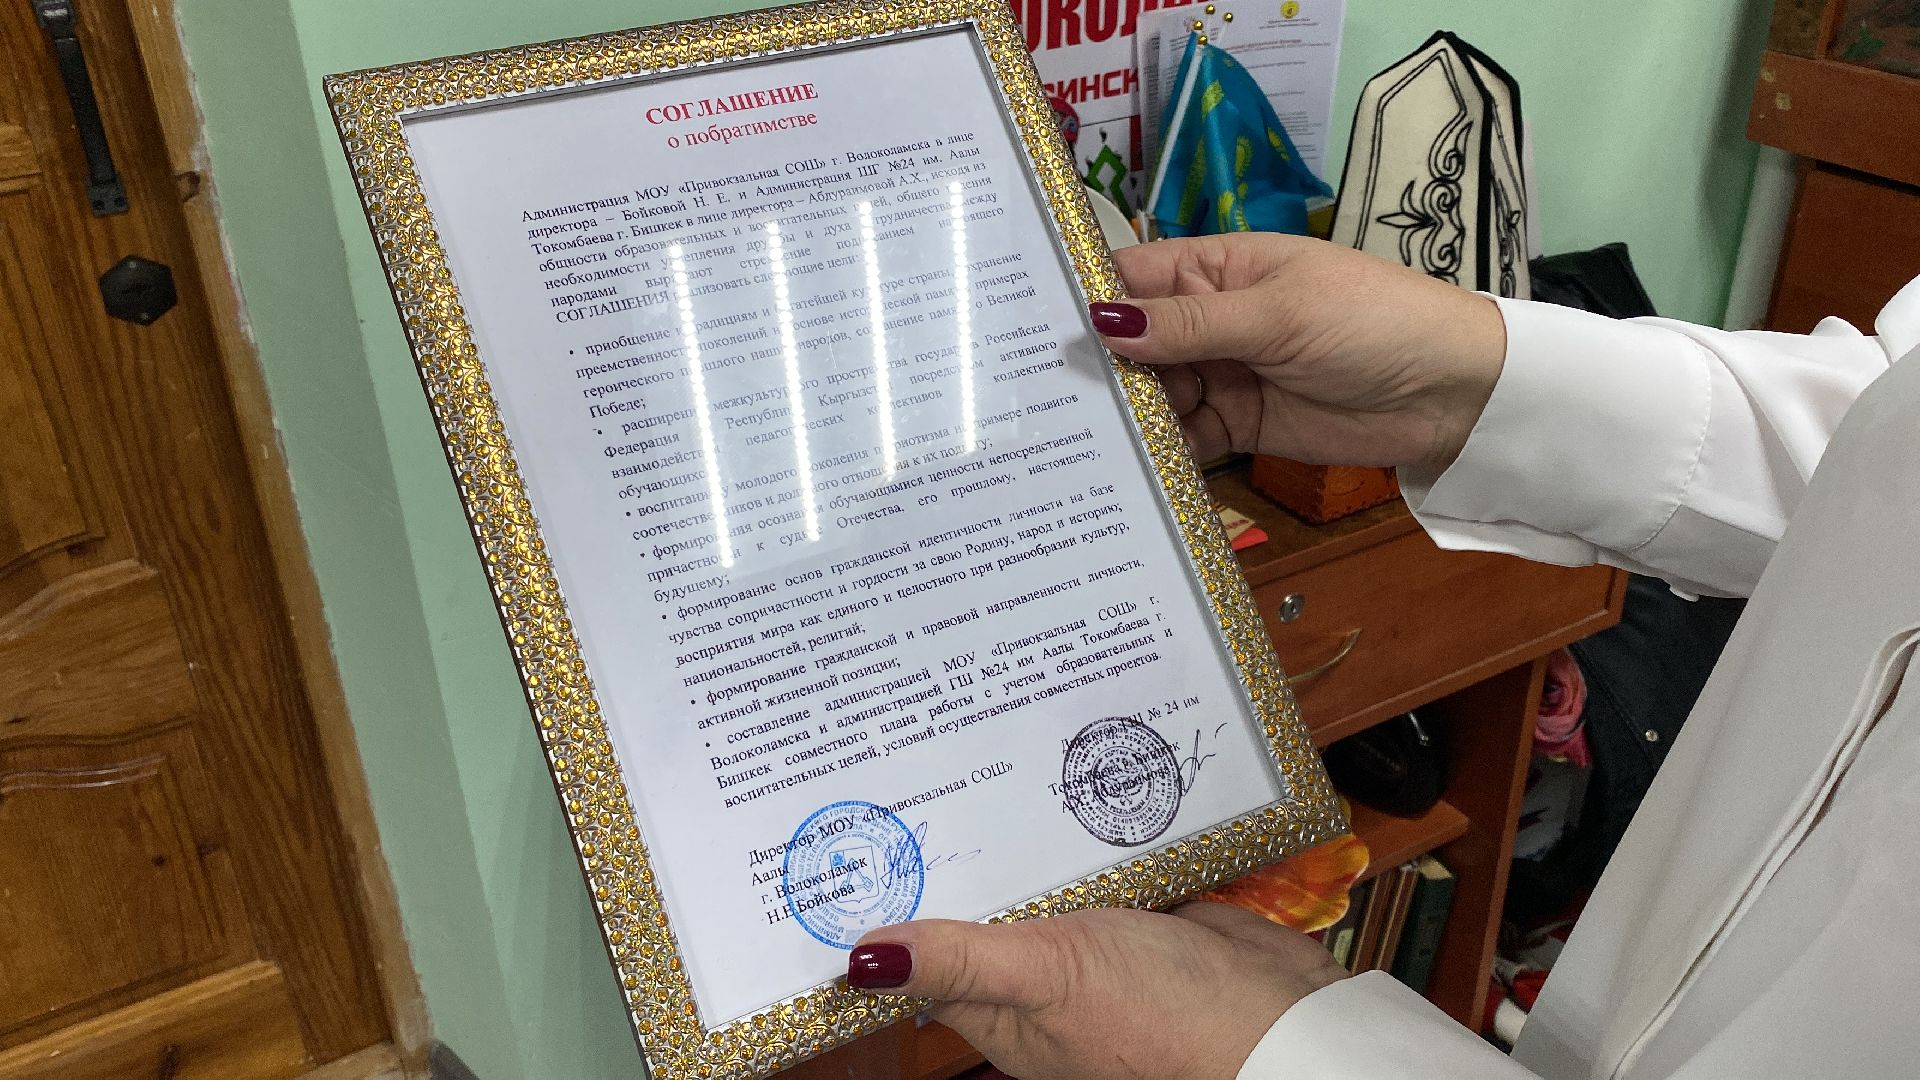 СОГЛАШЕНИЕ
о побратимстве
Администрация МОУ «Привокзальная СОШ» г. Волоколамска в лице
директора – Бойковой Н. Е. и Администрация ШГ №24 им. Аалы
Токомбаева г. Бишкек в лице директора – Абдураимовой А.Х., исходя из
общности образовательных и воспитательных целей, общего
необходимости укрепления дружбы и духа сотрудничества между
народами выражают стремление подписанием настоящего
СОГЛАШЕНИЯ реализовать следующие цели:
• приобщение к традициям и богатейшей культуре страны, сохранение
преемственности поколений на основе исторической памяти, примерах
героического прошлого наших народов, сохранение памяти о Великой
Победе;
• расширение межкультурного пространства государств Российская
Федерация и Республика Кыргызстан посредством активного
взаимодействия педагогических коллективов и коллективов
обучающихся;
• воспитание у молодого поколения патриотизма на примере подвигов
соотечественников и должного отношения к их подвигу;
• формирования осознания обучающимися ценности непосредственной
причастности к судьбе Отечества, его прошлому, настоящему,
будущему;
• формирование основ гражданской идентичности личности на базе
чувства сопричастности и гордости за свою Родину, народ и историю;
восприятия мира как единого и целостного при разнообразии культур,
национальностей, религий;
• формирование гражданской и правовой направленности личности,
активной жизненной позиции;
• составление администрацией МОУ «Привокзальная СОШ» г.
Волоколамска и администрацией ГШ №24 им Аалы Токомбаева г.
Бишкек совместного плана работы с учетом образовательных и
воспитательных целей, условий осуществления совместных проектов.
Директор МОУ «Привокзальная СОШ»
Аалы
г. Волоколамск
Н.Е.Бойкова
Директор ГШ № 24 им
Токомбаева г. Бишкек
А.Х. Абдураимова